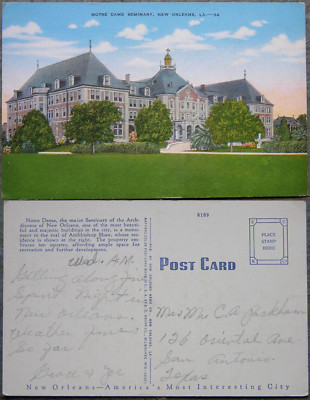 NOTRE DAME SEMINARY, NEW ORLEANS, LA.—34
Notre Dame, the major Seminary of the Arch-
diocese of New Orleans, one of the most beauti-
ful and majestic buildings in the city, is a monu-
ment to the zeal of Archbishop Shaw, whose res-
idence is shown at the right. The property cov-
ers ten squares, affording ample space for
recreation and further development.
Wed. A.M.
Getting along fine
Spent night in
New Orleans.
Weather fine
So far
Grace &
8169
POST CARD
PLACE
STAMP
HERE
Mr & Mrs C. A. Jackham
136 Oriental Ave
San Antonio
Texas
New Orleans—America's Most Interesting City